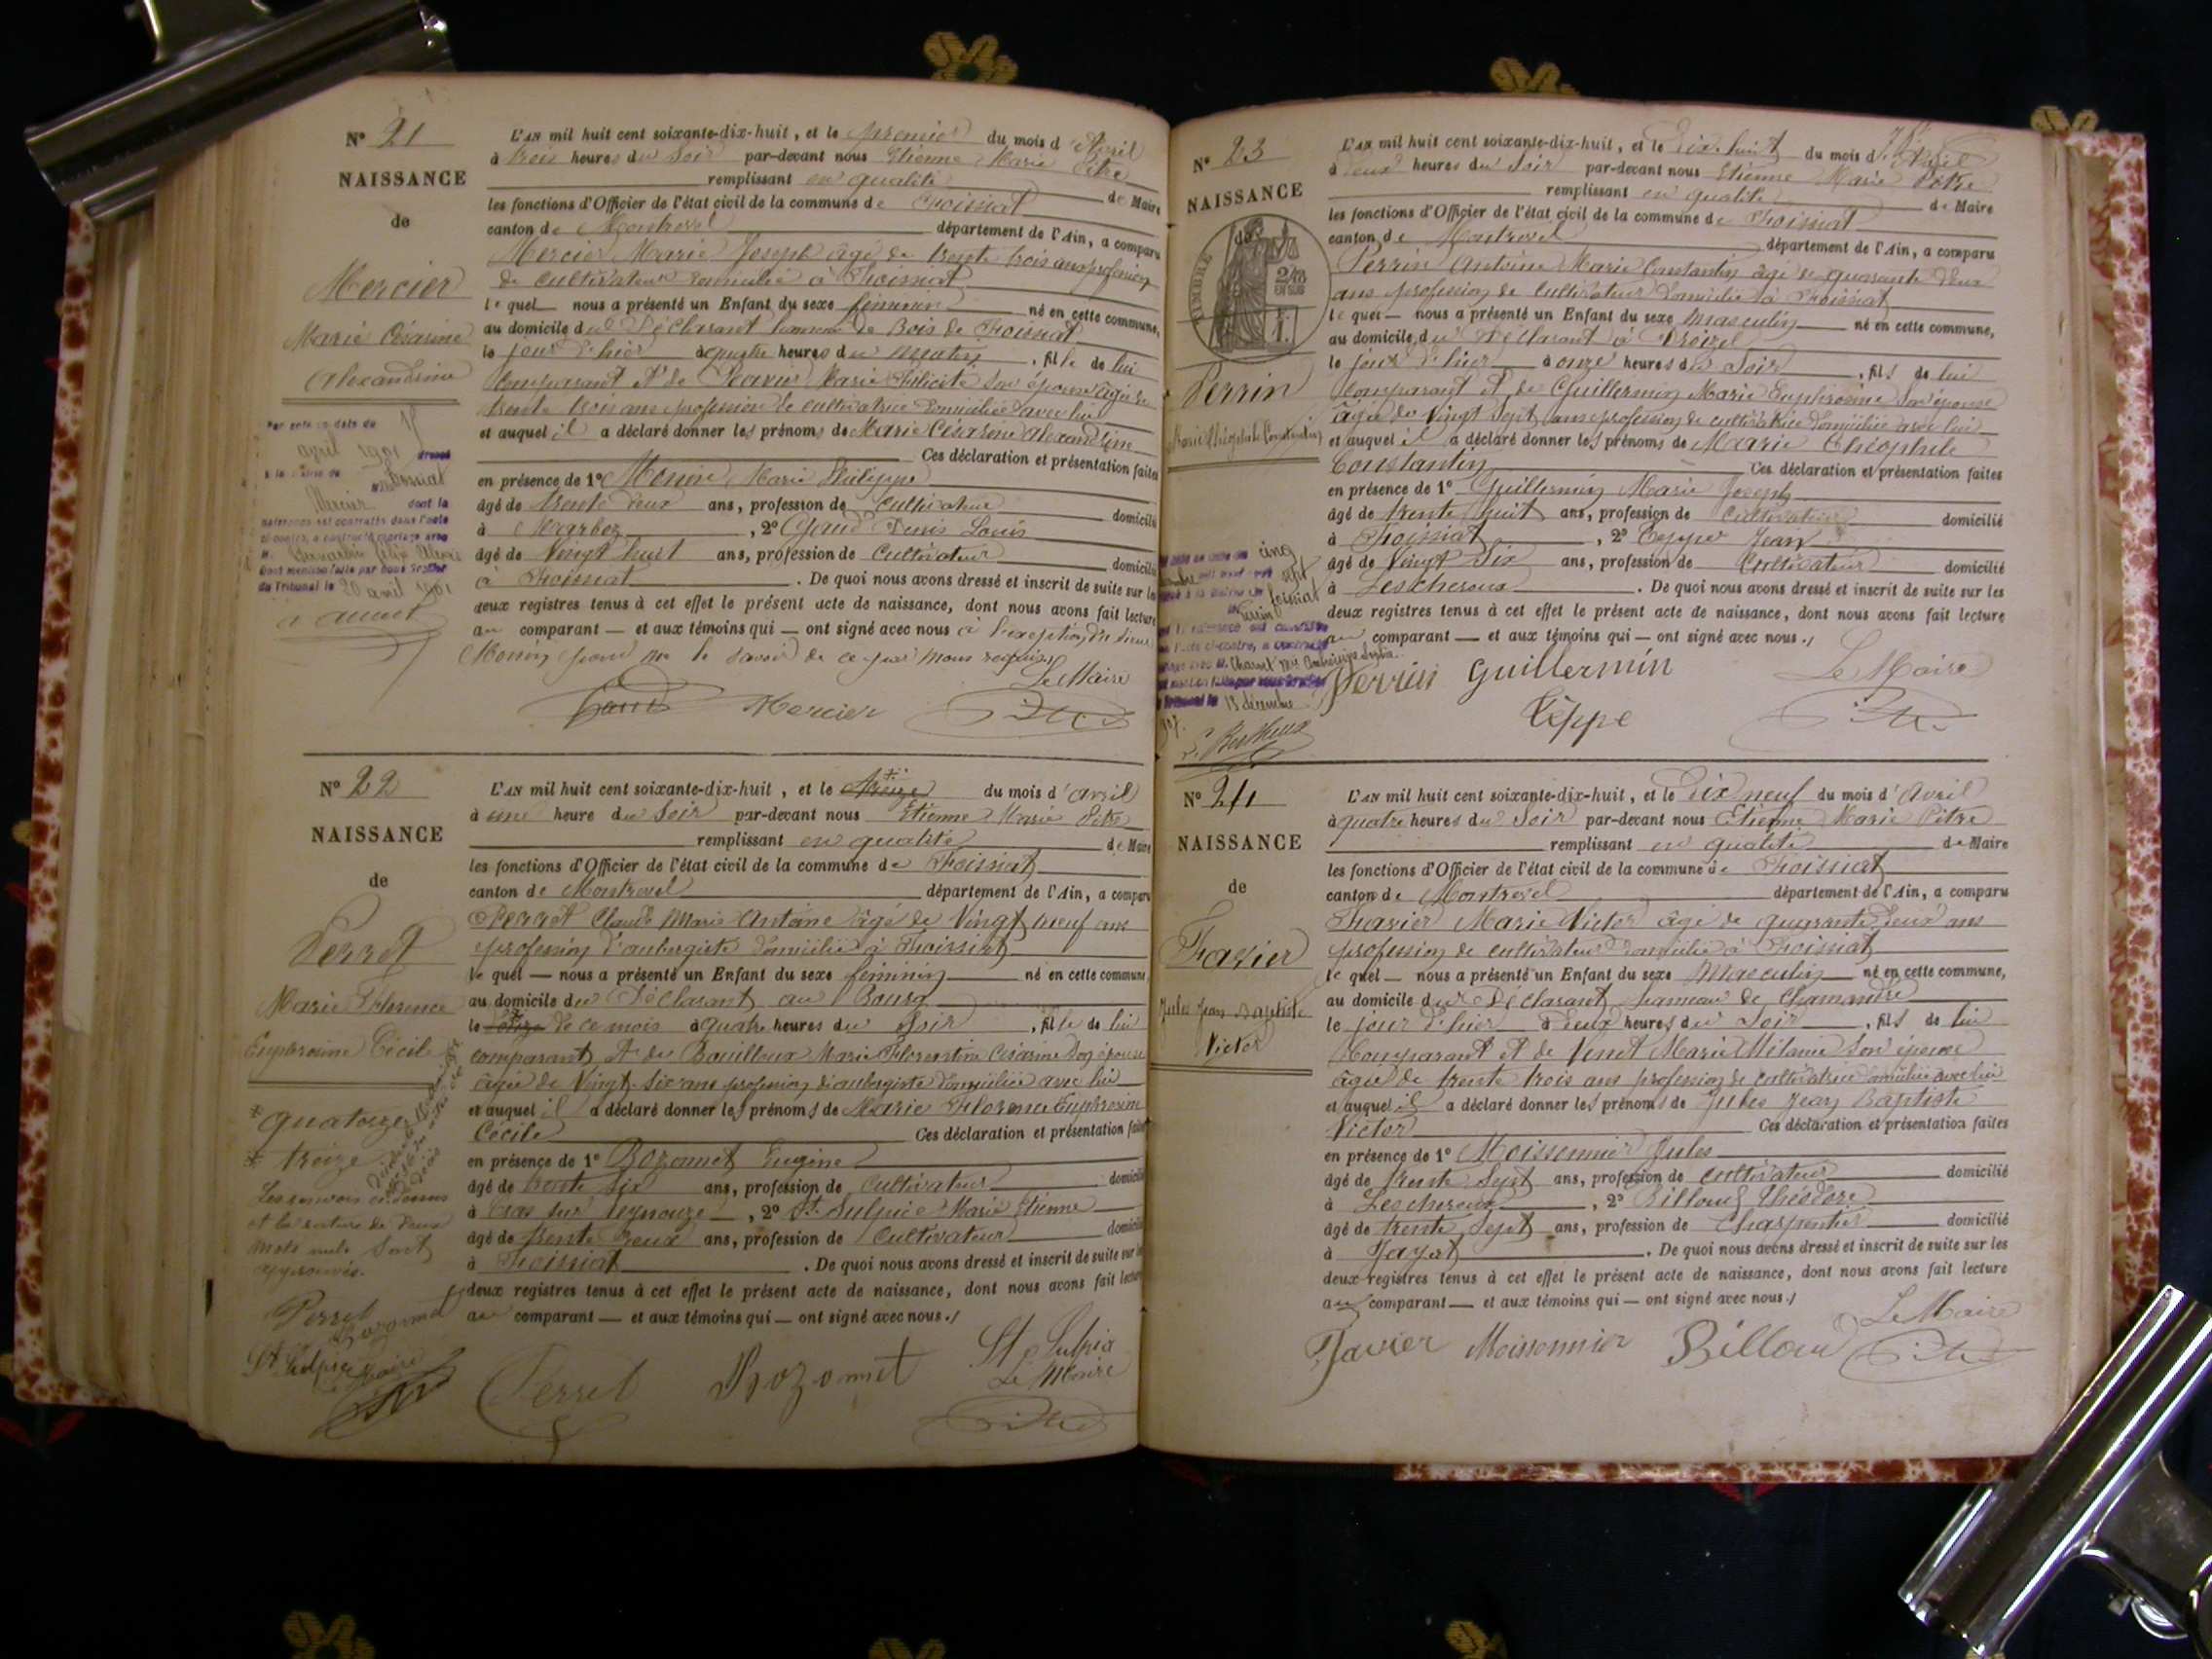 N° 21
NAISSANCE
de
Mercier
Marie Césarine
Alexandrine
Par acte en date du
avril 1901 dressé
à la Mairie de Foissiat
Mercier dont la
naissance est constatée dans l'acte
ci-contre, a contracté mariage avec
M.
Dont mention faite par nous Greffier
du Tribunal le 20 avril 1901
L'AN mil huit cent soixante-dix-huit, et le premier du mois d'Avril
à trois heures du Soir par-devant nous Etienne Marie Pitre
remplissant en qualité de Maire
les fonctions d'Officier de l'état civil de la commune de Foissiat
canton de Montrevel département de l'Ain, a comparu
Mercier Marie Joseph âgé de trente trois ans profession
de cultivateur domicilié à Foissiat
lequel nous a présenté un Enfant du sexe féminin né en cette commune,
au domicile du Déclarant hameau de Bois de Foissiat
le jour d'hier à quatre heures du matin, fille de lui
Comparant et de Marie Félicité son épouse âgée de
trente trois ans profession de cultivatrice domiciliée avec lui
et auquel il a déclaré donner les prénoms de Marie Césarine Alexandrine
Ces déclaration et présentation faites
en présence de 1° Monin Marie Philippe
âgé de trente deux ans, profession de cultivateur domicilié
à Marboz, 2° Gaud Denis Louis
âgé de Vingt huit ans, profession de Cultivateur domicilié
à Foissiat. De quoi nous avons dressé et inscrit de suite sur les
deux registres tenus à cet effet le présent acte de naissance, dont nous avons fait lecture
au comparant — et aux témoins qui — ont signé avec nous à l'exception du sieur
Monin pour ne le savoir de ce par nous requis
Le Maire
Gaud Mercier Pitre
N° 22
NAISSANCE
de
Perret
Marie Florence
Euphrosine Cécile
* quatorze
* treize
Les renvois ci-dessus
et la rature de deux
mots nuls sont
approuvés.
Perret
Bozonnet
St Sulpice
Le Maire
L'AN mil huit cent soixante-dix-huit, et le treize * du mois d'avril
à une heure du Soir par-devant nous Etienne Marie Pitre
remplissant en qualité de Maire
les fonctions d'Officier de l'état civil de la commune de Foissiat
canton de Montrevel département de l'Ain, a comparu
Perret Claude Marie Antoine âgé de Vingt neuf ans
profession d'aubergiste domicilié à Foissiat
lequel — nous a présenté un Enfant du sexe féminin né en cette commune
au domicile du Déclarant au Bourg
le * de ce mois à quatre heures du Soir, fille de lui
comparant et de Bouilloux Marie Florentine Césarine son épouse
âgée de Vingt-six ans profession d'aubergiste domiciliée avec lui
et auquel il a déclaré donner les prénoms de Marie Florence Euphrosine
Cécile Ces déclaration et présentation faites
en présence de 1° Bozonnet Eugène
âgé de trente six ans, profession de Cultivateur domicilié
à Cras sur Reyssouze, 2° St Sulpice Marie Etienne
âgé de trente deux ans, profession de Cultivateur domicilié
à Foissiat. De quoi nous avons dressé et inscrit de suite sur les
deux registres tenus à cet effet le présent acte de naissance, dont nous avons fait lecture
au comparant — et aux témoins qui — ont signé avec nous./
Perret Bozonnet St Sulpice
Le Maire
Pitre
N° 23
NAISSANCE
de
TIMBRE
Perrin
Marie Théophile Constantin
cinq
sept
Foissiat
13 décembre
L'AN mil huit cent soixante-dix-huit, et le Dix huit du mois d'Avril
à deux heures du Soir par-devant nous Etienne Marie Pitre
remplissant en qualité de Maire
les fonctions d'Officier de l'état civil de la commune de Foissiat
canton de Montrevel département de l'Ain, a comparu
Perrin Antoine Marie Constantin âgé de quarante deux
ans profession de cultivateur domicilié à Foissiat
lequel — nous a présenté un Enfant du sexe masculin né en cette commune,
au domicile du Déclarant à
le jour d'hier à onze heures du Soir, fils de lui
Comparant et de Guillermin Marie Euphrosine son épouse
âgée de Vingt Sept ans profession de cultivatrice domiciliée avec lui
et auquel il a déclaré donner les prénoms de Marie Théophile
Constantin Ces déclaration et présentation faites
en présence de 1° Guillermin Marie Joseph
âgé de trente huit ans, profession de Cultivateur domicilié
à Foissiat, 2° Teppe Jean
âgé de Vingt Six ans, profession de Cultivateur domicilié
à Lescheroux. De quoi nous avons dressé et inscrit de suite sur les
deux registres tenus à cet effet le présent acte de naissance, dont nous avons fait lecture
au comparant — et aux témoins qui — ont signé avec nous./
Perrin Guillermin Le Maire
Teppe Pitre
N° 24
NAISSANCE
de
Favier
Jules Jean Baptiste
Victor
L'AN mil huit cent soixante-dix-huit, et le Dix neuf du mois d'Avril
à quatre heures du Soir par-devant nous Etienne Marie Pitre
remplissant en qualité de Maire
les fonctions d'Officier de l'état civil de la commune de Foissiat
canton de Montrevel département de l'Ain, a comparu
Favier Marie Victor âgé de quarante Deux ans
profession de cultivateur domicilié à Foissiat
lequel — nous a présenté un Enfant du sexe Masculin né en cette commune,
au domicile du Déclarant hameau de Chamandre
le jour d'hier à Deux heures du Soir, fils de lui
Comparant et de Venet Marie Mélanie son épouse
âgée de trente trois ans profession de cultivatrice domiciliée avec lui
et auquel il a déclaré donner les prénoms de Jules Jean Baptiste
Victor Ces déclaration et présentation faites
en présence de 1° Moissonnier Jules
âgé de trente Sept ans, profession de cultivateur domicilié
à Lescheroux, 2° Billoud Théodore
âgé de trente Sept ans, profession de Charpentier domicilié
à Jayat. De quoi nous avons dressé et inscrit de suite sur les
deux registres tenus à cet effet le présent acte de naissance, dont nous avons fait lecture
au comparant — et aux témoins qui — ont signé avec nous./
Le Maire
Favier Moissonnier Billoud Pitre